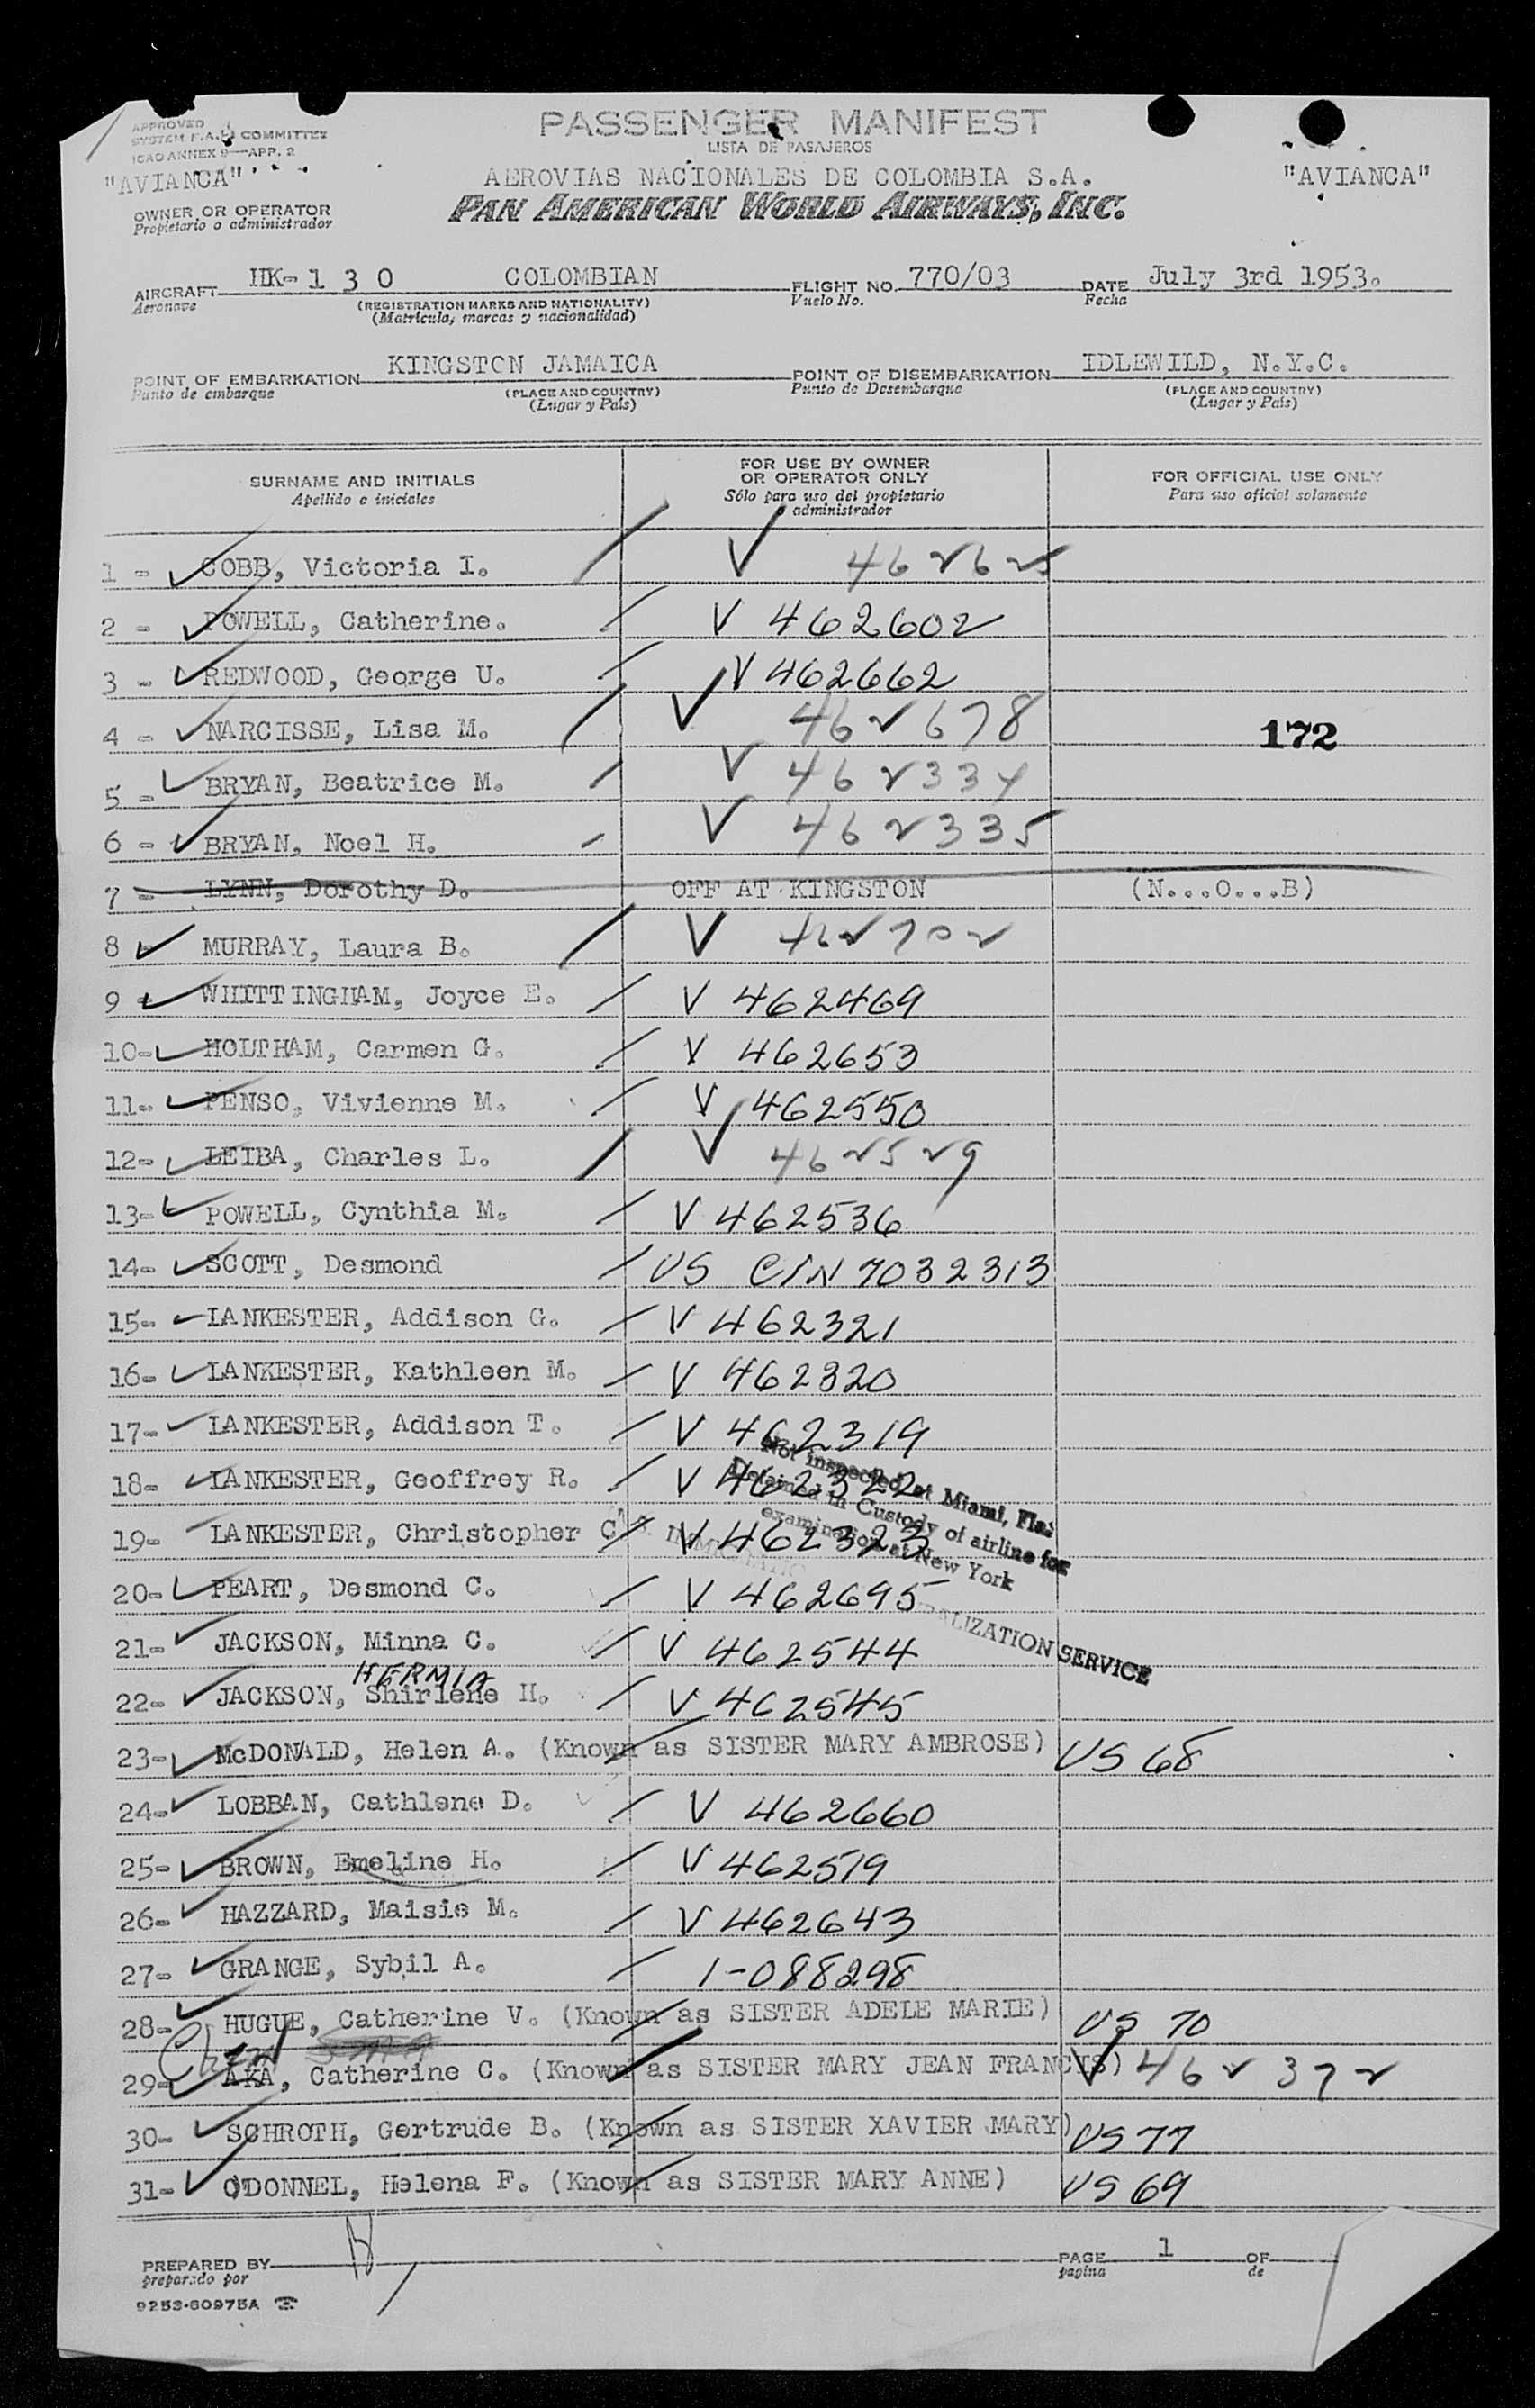 APPROVED
SYSTEM F.A.L. COMMITTEE
ICAO ANNEX 9—APP. 2
PASSENGER MANIFEST
LISTA DE PASAJEROS
"AVIANCA"
AEROVIAS NACIONALES DE COLOMBIA S.A.
"AVIANCA"
PAN AMERICAN WORLD AIRWAYS, INC.
OWNER OR OPERATOR
Propietario o administrador
AIRCRAFT HK-1 3 0 COLOMBIAN FLIGHT NO. 770/03 DATE July 3rd 1953.
Aeronave (REGISTRATION MARKS AND NATIONALITY) Vuelo No. Fecha
(Matrícula, marcas y nacionalidad)
POINT OF EMBARKATION KINGSTON JAMAICA POINT OF DISEMBARKATION IDLEWILD, N.Y.C.
Punto de embarque (PLACE AND COUNTRY) Punto de Desembarque (PLACE AND COUNTRY)
(Lugar y País) (Lugar y País)
SURNAME AND INITIALS FOR USE BY OWNER OR OPERATOR ONLY FOR OFFICIAL USE ONLY
Apellido e iniciales Sólo para uso del propietario o administrador Para uso oficial solamente
1 - COBB, Victoria I. V 46262
2 - POWELL, Catherine. V 462602
3 - REDWOOD, George U. V 462662
4 - NARCISSE, Lisa M. V 462678 172
5 - BRYAN, Beatrice M. V 462334
6 - BRYAN, Noel H. V 462335
7 - LYNN, Dorothy D. OFF AT KINGSTON (N...O...B)
8 - MURRAY, Laura B. V 462702
9 - WHITTINGHAM, Joyce E. V 462469
10- HOLTHAM, Carmen G. V 462653
11- PENSO, Vivienne M. V 462550
12- LEIBA, Charles L. V 462529
13- POWELL, Cynthia M. V 462536
14- SCOTT, Desmond US CIN 7032313
15- LANKESTER, Addison G. V 462321
16- LANKESTER, Kathleen M. V 462320
17- LANKESTER, Addison T. V 462319
18- LANKESTER, Geoffrey R. V 462322
Not inspected at Miami, Fla.
Detained in Custody of airline for
examination at New York
19- LANKESTER, Christopher C. V 462323
20- PEART, Desmond C. V 462695
U.S. IMMIGRATION NATURALIZATION SERVICE
21- JACKSON, Minna C. V 462544
HERMIA
22- JACKSON, Shirlene H. V 462545
23- McDONALD, Helen A. (Known as SISTER MARY AMBROSE) US 68
24- LOBBAN, Cathlene D. V 462660
25- BROWN, Emeline H. V 462519
26- HAZZARD, Maisie M. V 462643
27- GRANGE, Sybil A. 1-088298
28- HUGUE, Catherine V. (Known as SISTER ADELE MARIE) US 70
Chen
29- AKA, Catherine C. (Known as SISTER MARY JEAN FRANCIS) V 462372
30- SCHROTH, Gertrude B. (Known as SISTER XAVIER MARY) US 77
31- O'DONNEL, Helena F. (Known as SISTER MARY ANNE) US 69
PREPARED BY PAGE 1 OF
preparado por pagina de
9253-60975A